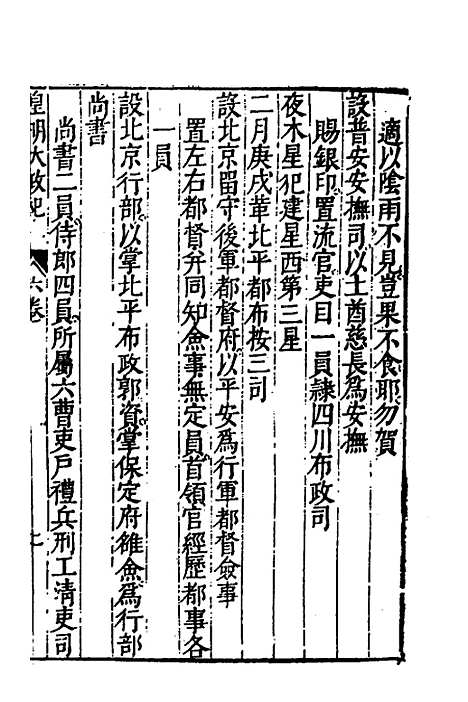 適以陰雨不見豈果不食耶勿賀
設普安安撫司以土酋慈長爲安撫
賜銀印置流官吏目一員隷四川布政司
夜木星犯建星西第三星
二月庚戌革北平都布按三司
設北京留守後軍都督府以平安爲行軍都督僉事
置左右都督并同知僉事無定員首領官經歷都事各
一員
設北京行部以掌北平布政郭資掌保定府雒僉爲行部
尚書
尚書二員侍郎四員所屬六曹吏戶禮兵刑工淸吏司
皇明大政紀 六卷 七